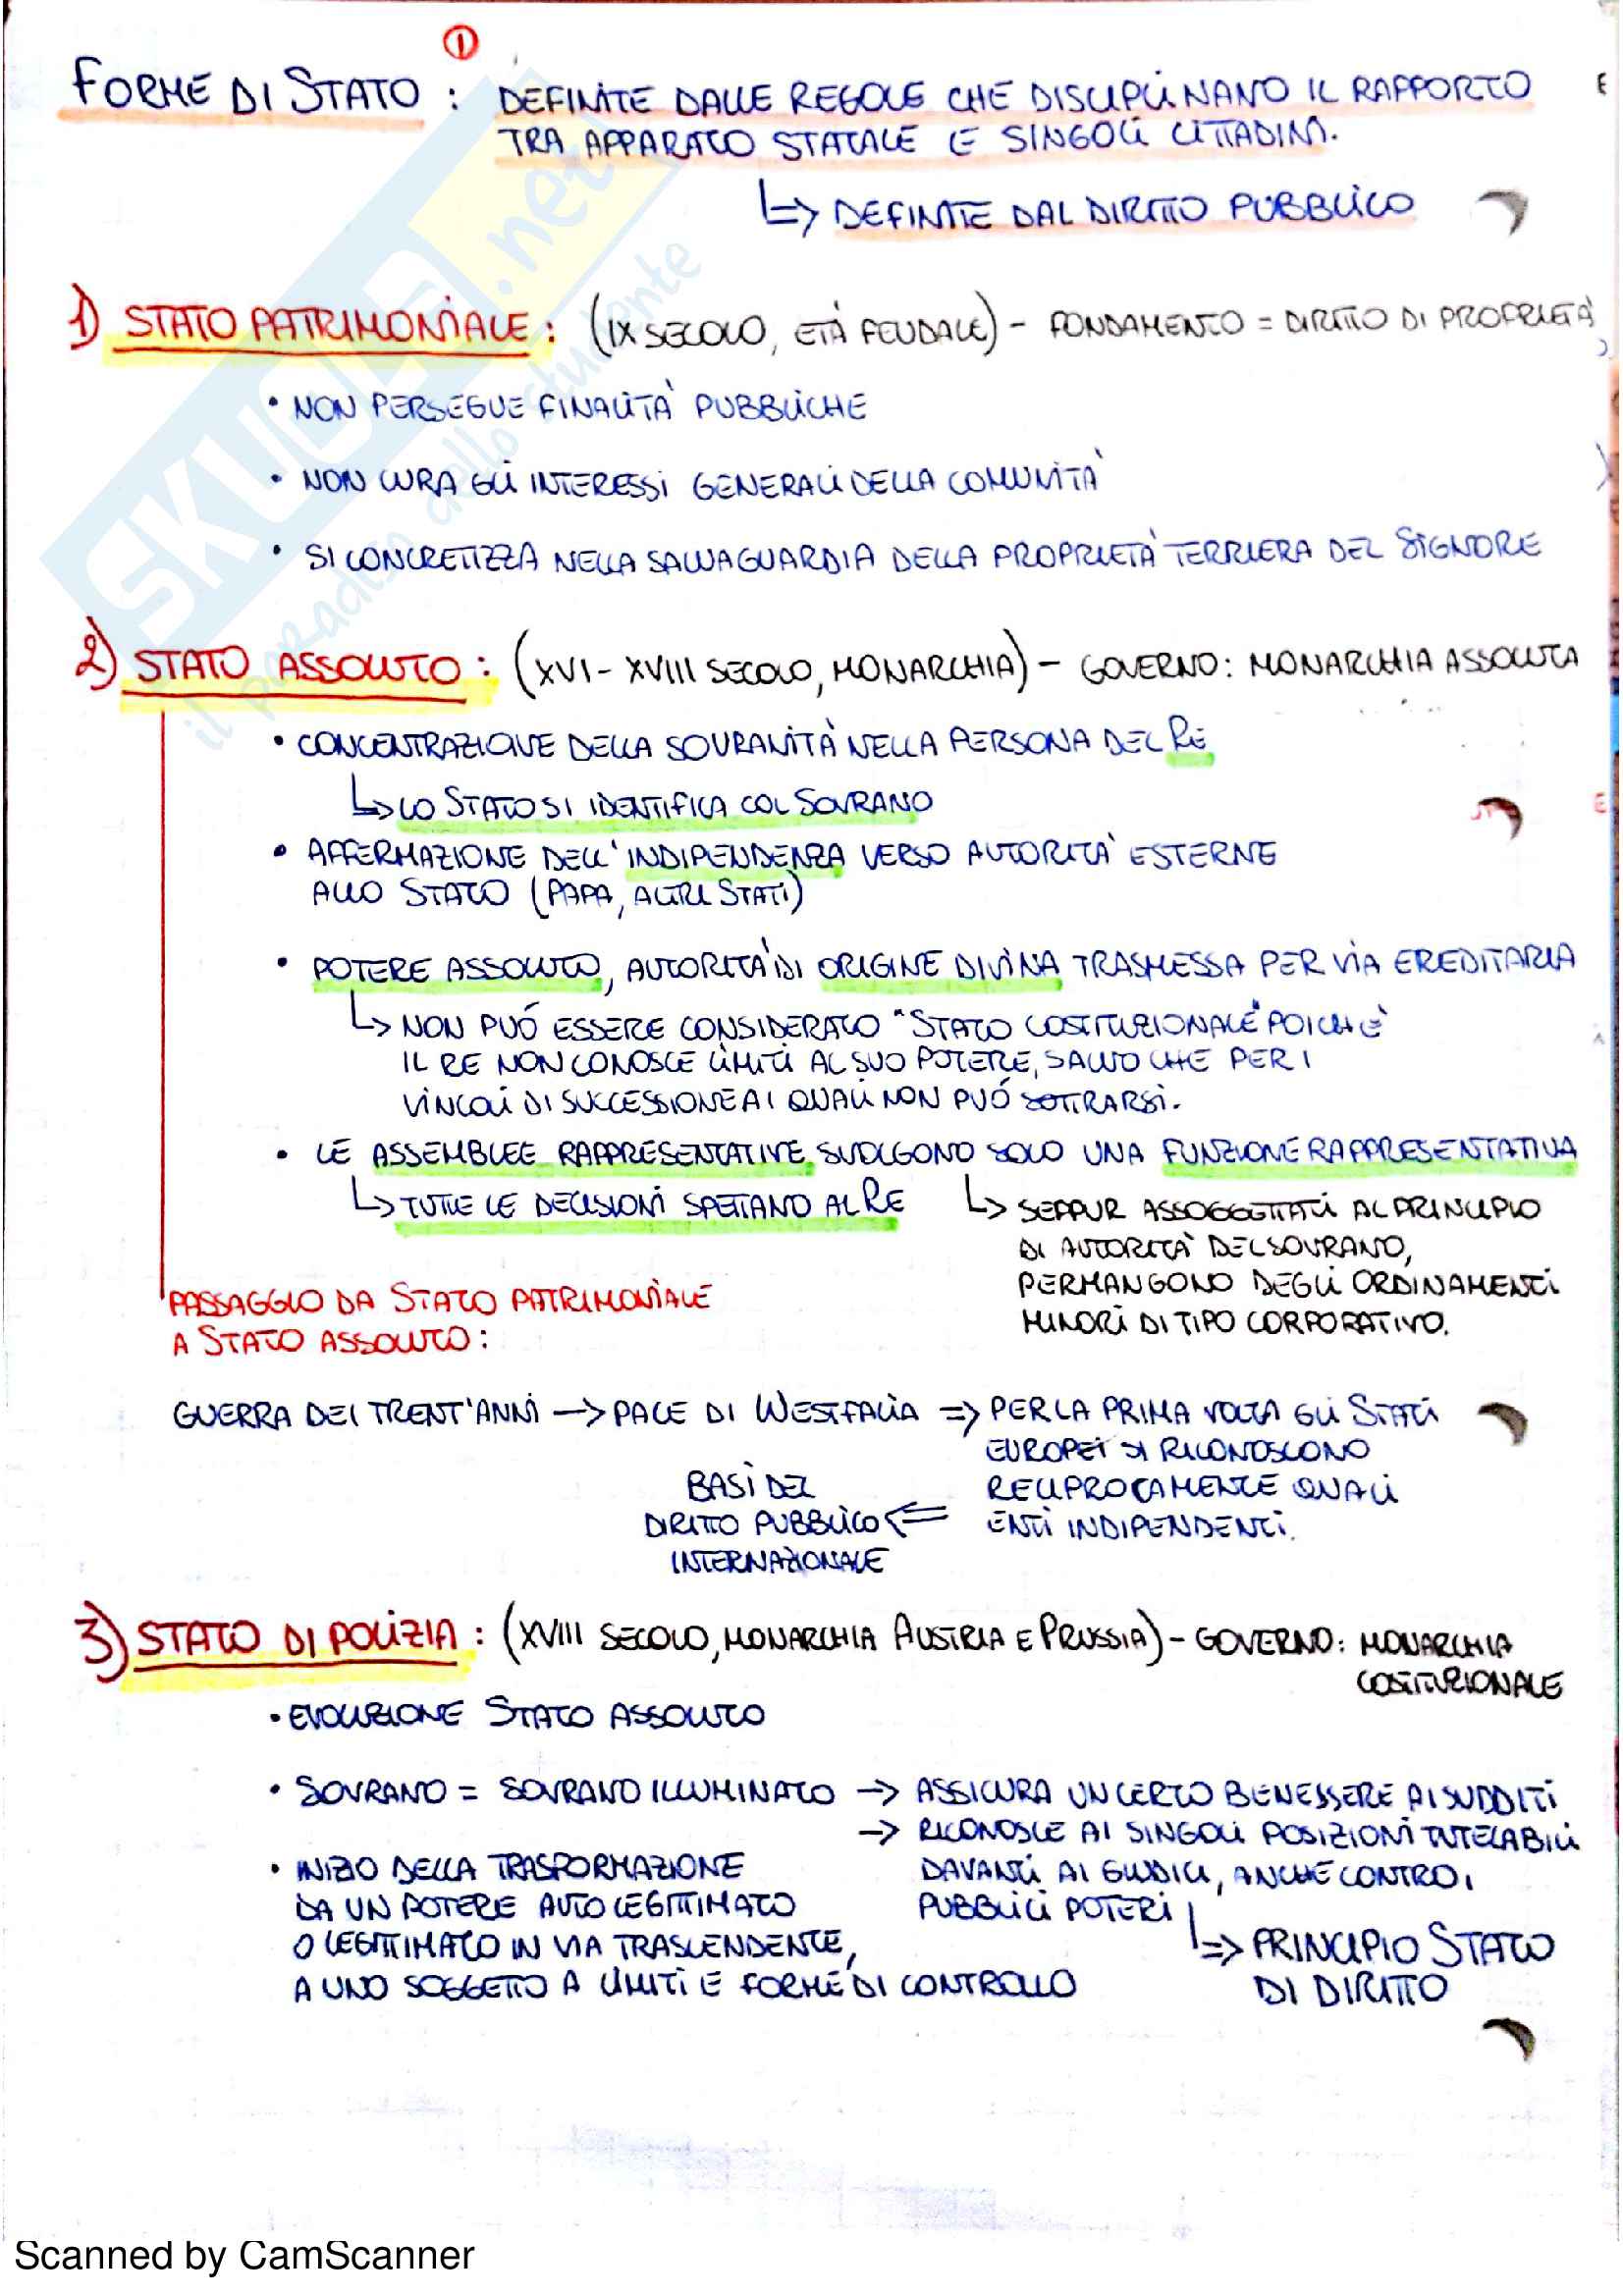 ①
FORME DI STATO : DEFINITE DALLE REGOLE CHE DISCIPLINANO IL RAPPORTO
TRA APPARATO STATALE E SINGOLI CITTADINI.
↳> DEFINITE DAL DIRITTO PUBBLICO
1) STATO PATRIMONIALE : (IX SECOLO, ETÀ FEUDALE) - FONDAMENTO = DIRITTO DI PROPRIETÀ
• NON PERSEGUE FINALITÀ PUBBLICHE
• NON CURA GLI INTERESSI GENERALI DELLA COMUNITÀ
• SI CONCRETIZZA NELLA SALVAGUARDIA DELLA PROPRIETÀ TERRIERA DEL SIGNORE
2) STATO ASSOLUTO : (XVI - XVIII SECOLO, MONARCHIA) - GOVERNO: MONARCHIA ASSOLUTA
• CONCENTRAZIONE DELLA SOVRANITÀ NELLA PERSONA DEL RE
↳ LO STATO SI IDENTIFICA COL SOVRANO
• AFFERMAZIONE DELL'INDIPENDENZA VERSO AUTORITÀ ESTERNE
ALLO STATO (PAPA, ALTRI STATI)
• POTERE ASSOLUTO, AUTORITÀ DI ORIGINE DIVINA TRASMESSA PER VIA EREDITARIA
↳ NON PUÓ ESSERE CONSIDERATO "STATO COSTITUZIONALE" POICHÈ
IL RE NON CONOSCE LIMITI AL SUO POTERE, SALVO CHE PER I
VINCOLI DI SUCCESSIONE AI QUALI NON PUÓ SOTTRARSI.
• LE ASSEMBLEE RAPPRESENTATIVE SVOLGONO SOLO UNA FUNZIONE RAPPRESENTATIVA
↳ TUTTE LE DECISIONI SPETTANO AL RE
↳ SEPPUR ASSOGGETTATI AL PRINCIPIO
DI AUTORITÀ DEL SOVRANO,
PERMANGONO DEGLI ORDINAMENTI
MINORI DI TIPO CORPORATIVO.
PASSAGGIO DA STATO PATRIMONIALE
A STATO ASSOLUTO :
GUERRA DEI TRENT'ANNI → PACE DI WESTFALIA ⇒ PER LA PRIMA VOLTA GLI STATI
EUROPEI SI RICONOSCONO
RECIPROCAMENTE QUALI
ENTI INDIPENDENTI.
BASI DEL
DIRITTO PUBBLICO ⇐
INTERNAZIONALE
3) STATO DI POLIZIA : (XVIII SECOLO, MONARCHIA AUSTRIA E PRUSSIA) - GOVERNO: MONARCHIA
COSTITUZIONALE
• EVOLUZIONE STATO ASSOLUTO
• SOVRANO = SOVRANO ILLUMINATO → ASSICURA UN CERTO BENESSERE AI SUDDITI
→ RICONOSCE AI SINGOLI POSIZIONI TUTELABILI
DAVANTI AI GIUDICI, ANCHE CONTRO I
PUBBLICI POTERI
↳> PRINCIPIO STATO
DI DIRITTO
• INIZIO DELLA TRASFORMAZIONE
DA UN POTERE AUTOLEGITTIMATO
O LEGITTIMATO IN VIA TRASCENDENTE,
A UNO SOGGETTO A LIMITI E FORME DI CONTROLLO
SKUOLA.net
il paradiso dello studente
Scanned by CamScanner